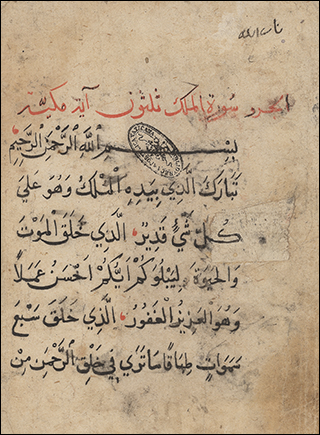 سورة الملك ثلثون آية مكية
بسم الله الرحمن الرحيم
تَبَارَكَ الَّذِي بِيَدِهِ الْمُلْكُ وَهُوَ عَلَىٰ
كُلِّ شَيْءٍ قَدِيرٌ الَّذِي خَلَقَ الْمَوْتَ
وَالْحَيٰوةَ لِيَبْلُوَكُمْ اَيُّكُمْ اَحْسَنُ عَمَلًا
وَهُوَ الْعَزِيزُ الْغَفُورُ الَّذِي خَلَقَ سَبْعَ
سَمَوَاتٍ طِبَاقًا مَا تَرَىٰ فِي خَلْقِ الرَّحْمٰنِ مِنْ